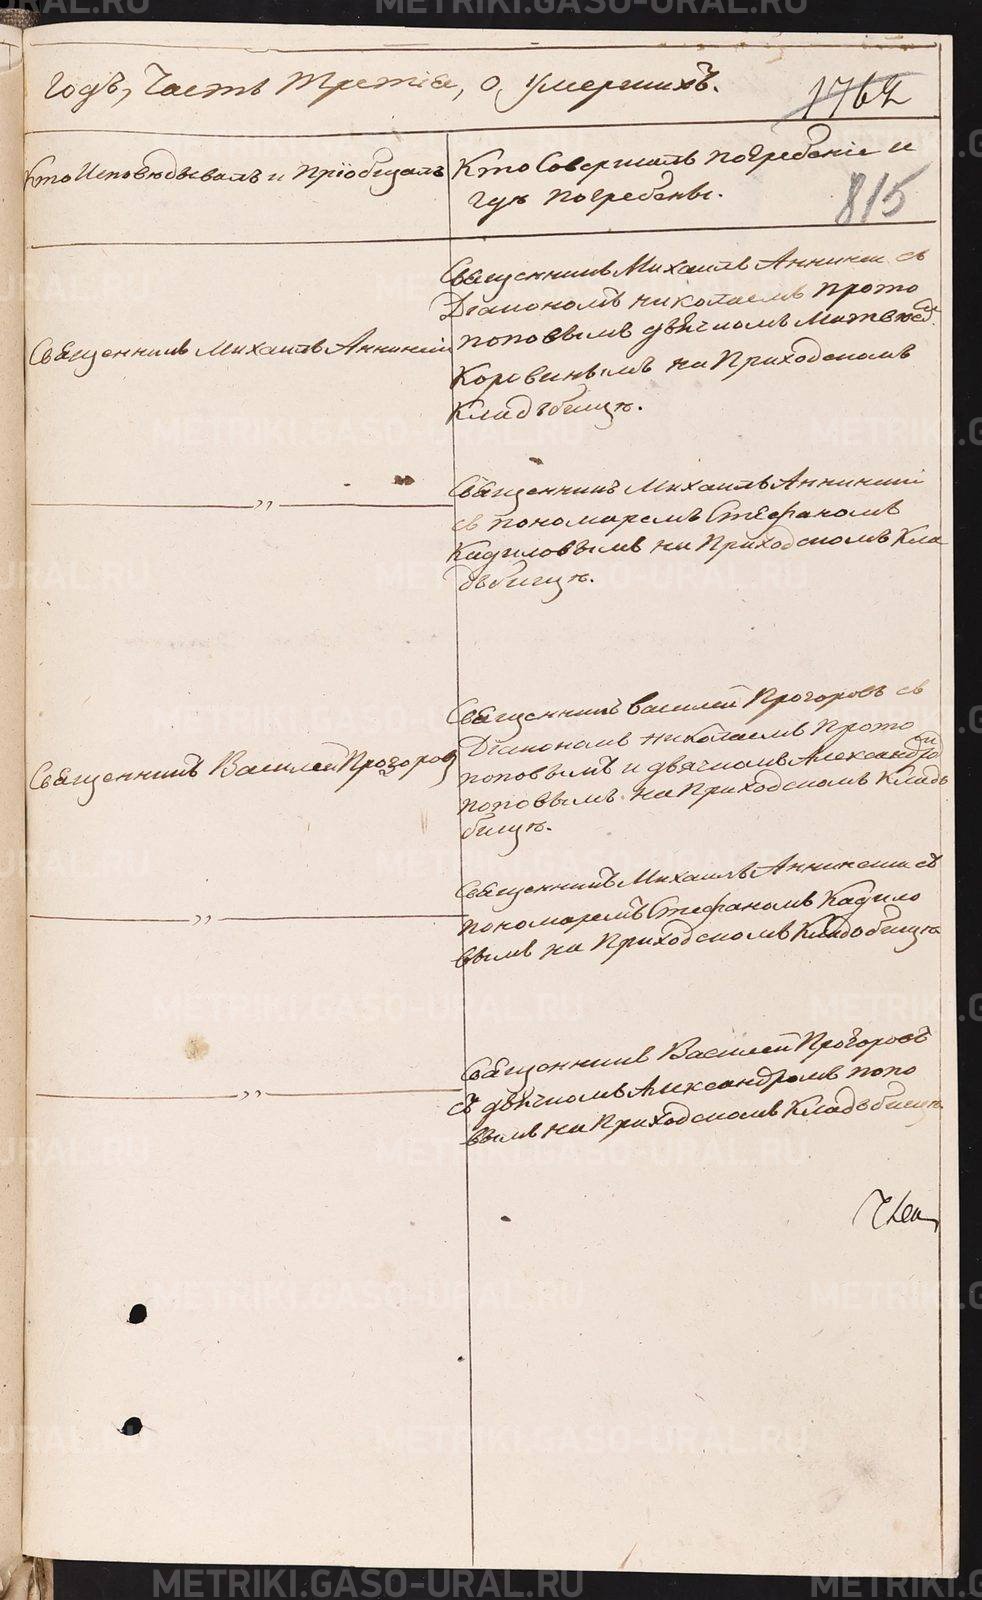 годъ, Часть Третіе, о, умершихъ.
1762
815
Кто Исповѣдывалъ и Пріобщалъ
Кто Совершалъ погребеніе и
гдѣ погребены.
Священникъ Михаилъ Аннинскій
Священникъ Михаилъ Аннински съ
Діакономъ николаемъ прото
поповымъ дьячкомъ Матвѣем
Коровинымъ на Приходскомъ
Кладъбищѣ.
〃
Священникъ Михаилъ Аннинский
съ пономаремъ Стефаномъ
Кадиловымъ на Приходскомъ Кла
дьбищѣ.
Священникъ Василей Прозоровъ
Священникъ василей Прозоровъ съ
Діакономъ николаемъ Прото
поповымъ и дьячкомъ Александро
поповвымъ на Приходскомъ Кладь
бищѣ.
〃
Священникъ Михаилъ Аннински съ
пономаремъ Стефаномъ Кадило
вымъ на Приходскомъ Кладбищѣ
〃
Священникъ Василей Прозоровъ
съ дьячкомъ Александромъ попо
вымъ на Приходскомъ Кладъбищѣ
METRIKI.GASO-URAL.RU